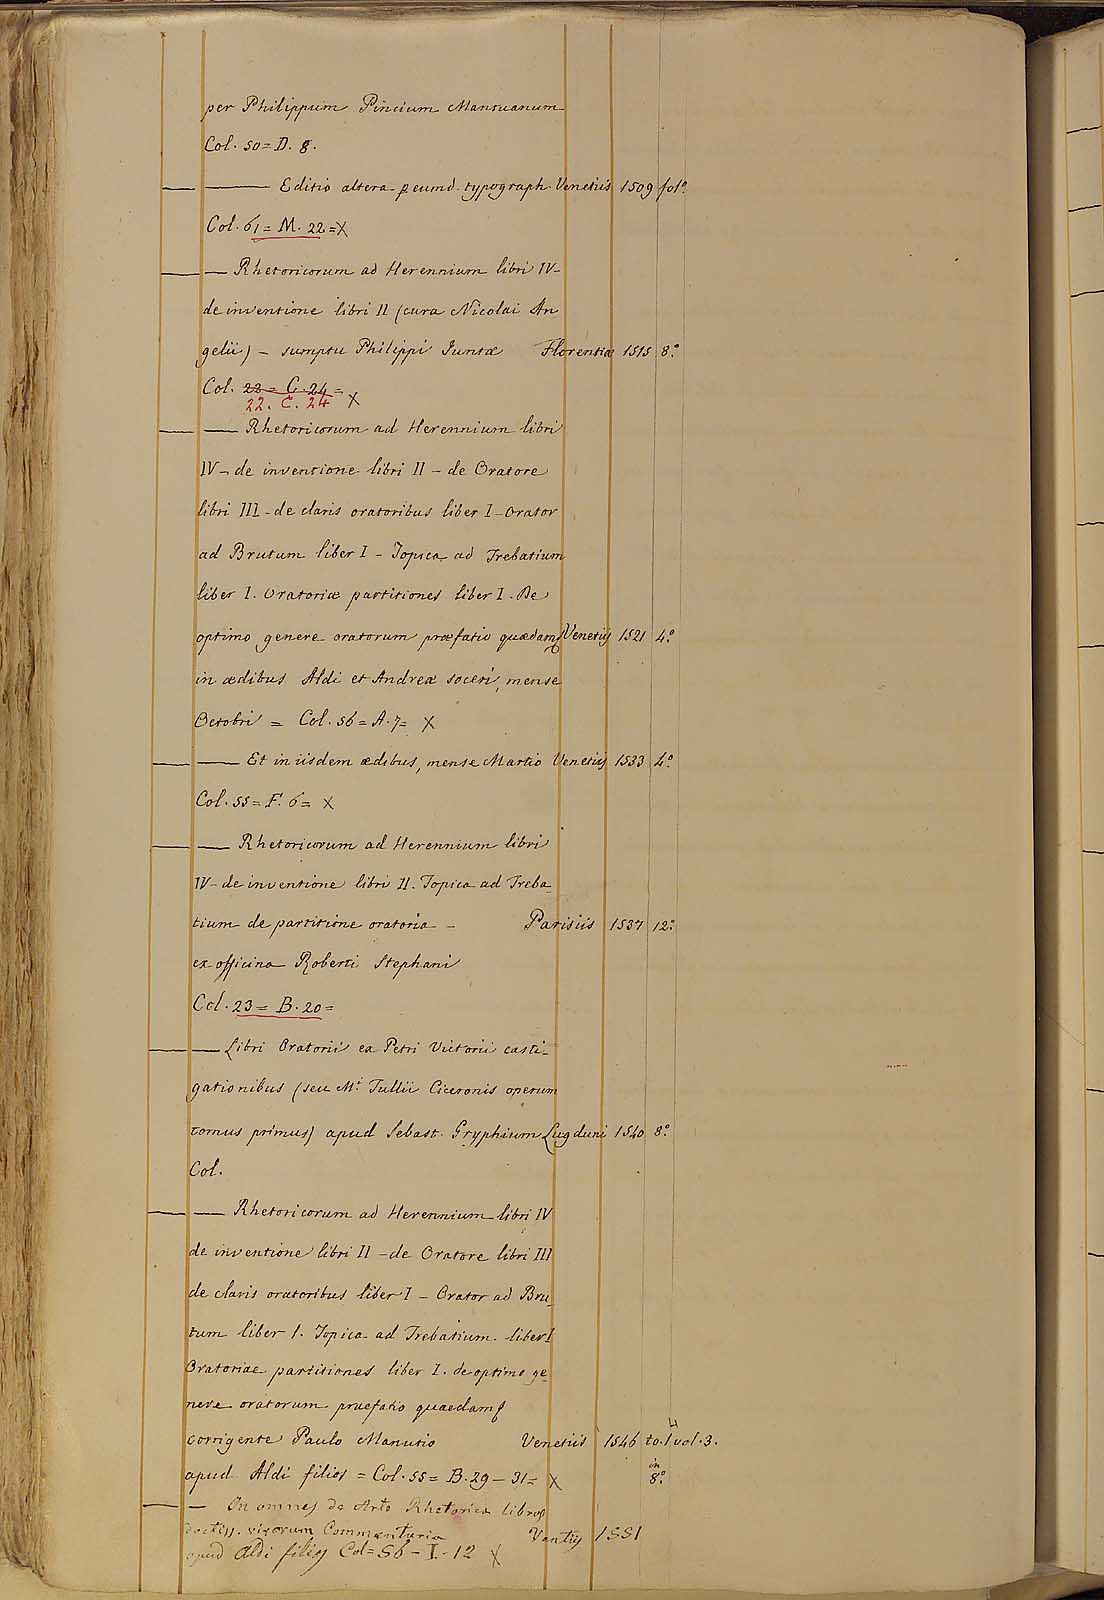 per Philippum Pincium Mantuanum
Col. 50 = D. 8.
— —— Editio altera p eumd. typograph. Venetiis 1509 fol.º
Col. 61 = M. 22 = X
— — Rhetoricorum ad Herennium libri IV-
de inventione libri II (cura Nicolai An
gelii) - sumptu Philippi Juntæ Florentiæ 1515 8.º
Col. 22 = C. 24 =
22. C. 24 X
— — Rhetoricorum ad Herennium libri
IV - de inventione libri II - de Oratore
libri III - de claris oratoribus liber I - Orator
ad Brutum liber I - Topica ad Trebatium
liber I. Oratoriæ partitiones liber I. De
optimo genere oratorum præfatio quædam Venetijs 1521 4.º
in ædibus Aldi et Andreæ soceri, mense
Octobri = Col. 56 = A. 7 = X
— — Et in iisdem ædibus, mense Martio Venetijs 1533 4.º
Col. 55 = F. 6 = X
— — Rhetoricorum ad Herennium libri
IV - de inventione libri II. Topica ad Treba
tium de partitione oratoria - Parisiis 1537 12.º
ex officina Roberti Stephani
Col. 23 = B. 20 =
— — Libri Oratorii ex Petri Victorii casti-
gationibus (seu M.t Tullii Ciceronis operum
tomus primus) apud Sebast. Gryphium Lugduni 1540 8.º
Col.
— — Rhetoricorum ad Herennium libri IV
de inventione libri II - de Oratore libri III
de claris oratoribus liber I - Orator ad Bru_
tum liber I. Topica ad Trebatium liber I
Oratoriae partitiones liber I. de optimo ge
nere oratorum praefatio quaedam
corrigente Paulo Manutio Venetiis 1546 to. 1 vol. 3.
apud Aldi filios = Col. 55 = B. 29 - 31 = X in 8.º
— — In omnes de Arte Rhetorica libros
doctiss. virorum Commentaria Venetijs 1551
apud Aldi filios Col = 56 - I. - 12 X